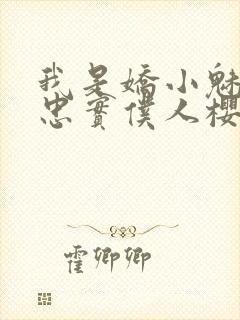 我是嬌小魅
忠實僕人櫻
霍卿卿